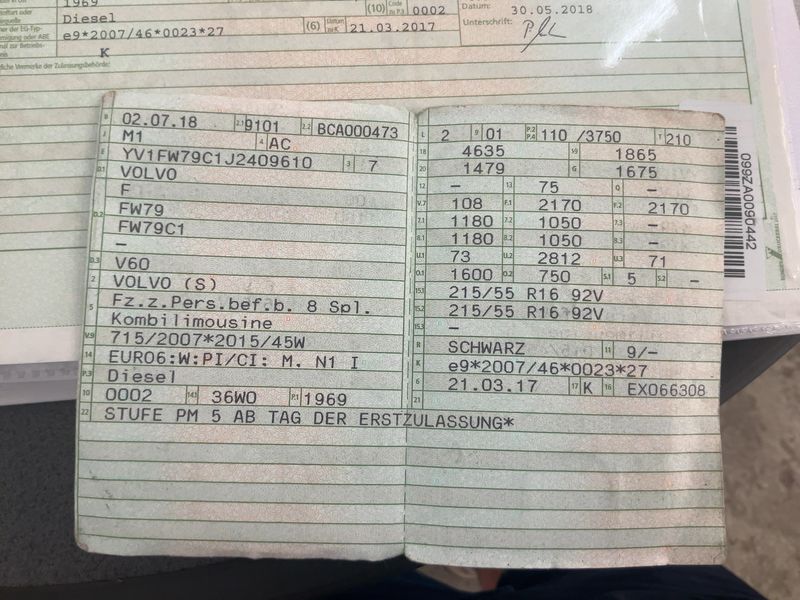 1969
Diesel
(10) Code zu P.3 0002
Datum: 30.05.2018
e9*2007/46*0023*27 (6) Datum zu K 21.03.2017
Unterschrift:
K
Vermerke der Zulassungsbehörde:
B 02.07.18 2.1 9101 2.2 BCA000473
J M1 4 AC
E YV1FW79C1J2409610 3 7
D.1 VOLVO
F
D.2 FW79
FW79C1
–
D.3 V60
2 VOLVO (S)
5 Fz.z.Pers.bef.b. 8 Spl.
Kombilimousine
V.9 715/2007*2015/45W
14 EURO6:W:PI/CI: M, N1 I
P.3 Diesel
10 0002 14.1 36W0 P.1 1969
22 STUFE PM 5 AB TAG DER ERSTZULASSUNG*
L 2 9 01 P.2 P.4 110 /3750 T 210
18 4635 19 1865
20 1479 G 1675
12 – 13 75 Q –
V.7 108 F.1 2170 F.2 2170
7.1 1180 7.2 1050 7.3 –
8.1 1180 8.2 1050 8.3 –
U.1 73 U.2 2812 U.3 71
O.1 1600 O.2 750 S.1 5 S.2 –
15.1 215/55 R16 92V
15.2 215/55 R16 92V
15.3 –
R SCHWARZ 11 9/–
K e9*2007/46*0023*27
6 21.03.17 17 K 16 EX066308
21
099ZA0090442